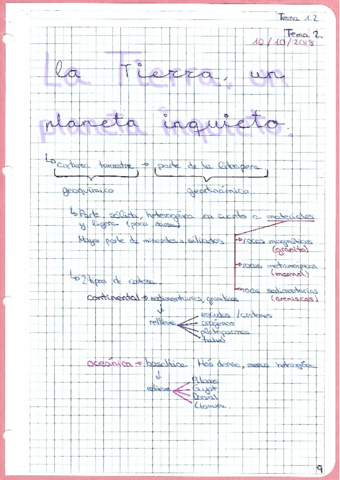 Tema 12
Tema 2
12/10/2018
La Tierra, un
planeta inquieto.
corteza terrestre → parte de la litosfera
geoquímico geodinámico
Parte sólida, heterogénea en cuanto a materiales
y ligera (poco densa)
Mayor parte de minerales silicatos
rocas magmáticas
(granito)
rocas metamórficas
(mármol)
rocas sedimentarias
(areniscas)
2 tipos de corteza
continental → sedimentarias, graníticas
relieve
escudos / cratones
orógenos
plataformas
talud
oceánica → basáltica Más densa, menos heterogénea
relieve
Guyot
Dorsal
Llanura
9